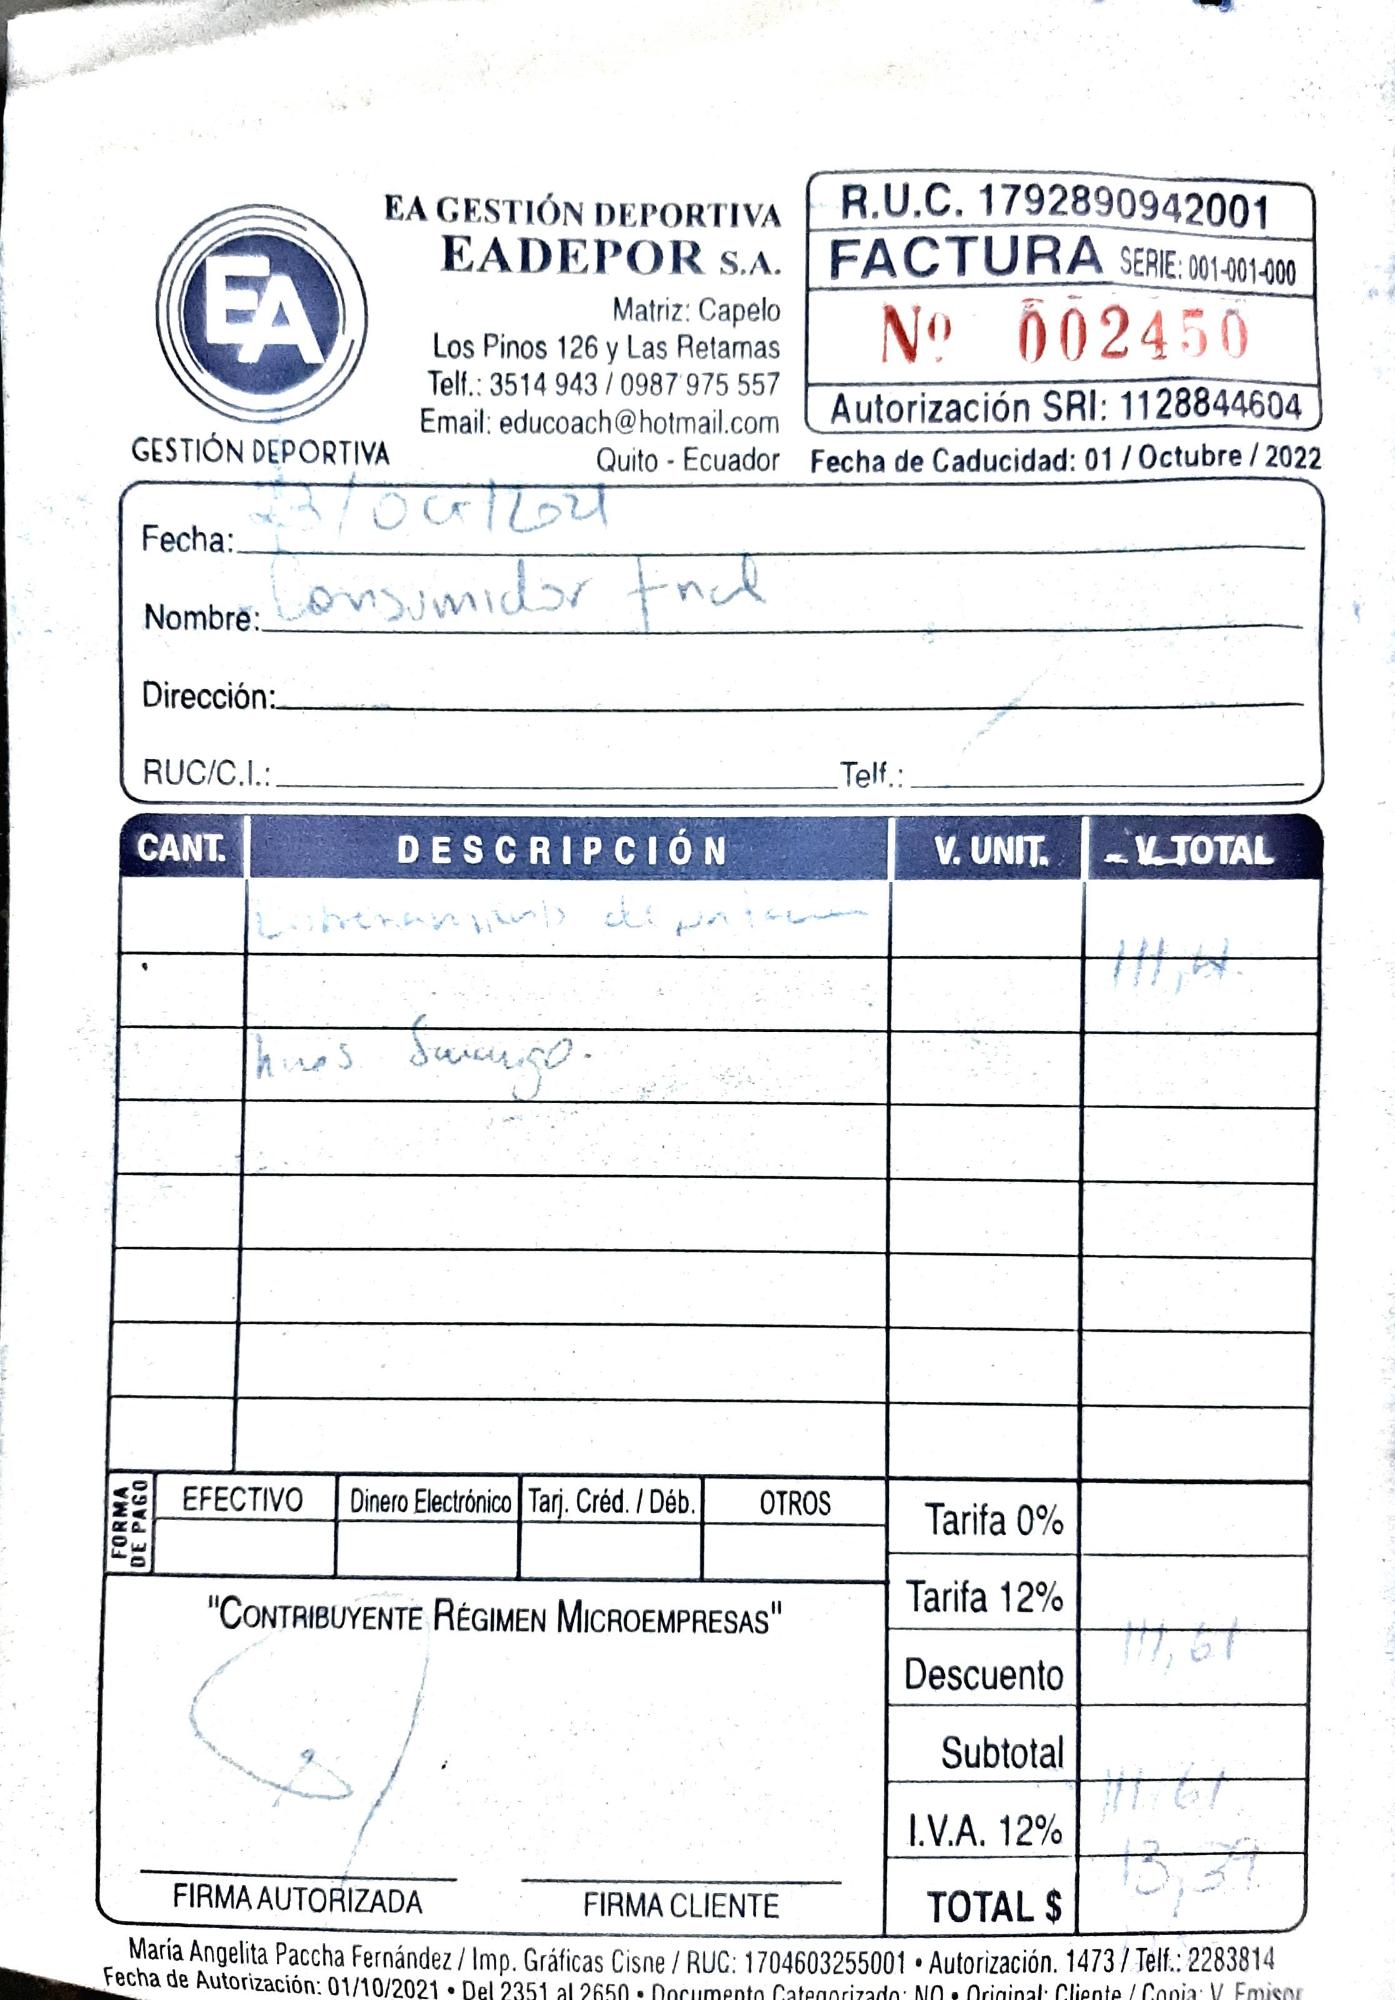 EA GESTIÓN DEPORTIVA
EADEPOR S.A.
Matriz: Capelo
Los Pinos 126 y Las Retamas
Telf.: 3514 943 / 0987 975 557
Email: educoach@hotmail.com
Quito - Ecuador
EA
GESTIÓN DEPORTIVA
R.U.C. 1792890942001
FACTURA SERIE: 001-001-000
Nº 002450
Autorización SRI: 1128844604
Fecha de Caducidad: 01 / Octubre / 2022
Fecha: 23/Oct/2021
Nombre: Consumidor Final
Dirección:
RUC/C.I.: Telf.:
CANT. DESCRIPCIÓN V. UNIT. V. TOTAL
111,61
FORMA DE PAGO
EFECTIVO Dinero Electrónico Tarj. Créd. / Déb. OTROS
Tarifa 0%
Tarifa 12%
111,61
Descuento
Subtotal
111,61
I.V.A. 12%
13,39
TOTAL $
"CONTRIBUYENTE RÉGIMEN MICROEMPRESAS"
FIRMA AUTORIZADA FIRMA CLIENTE
María Angelita Paccha Fernández / Imp. Gráficas Cisne / RUC: 1704603255001 • Autorización. 1473 / Telf.: 2283814
Fecha de Autorización: 01/10/2021 • Del 2351 al 2650 • Documento Categorizado: NO • Original: Cliente / Copia: V. Emisor